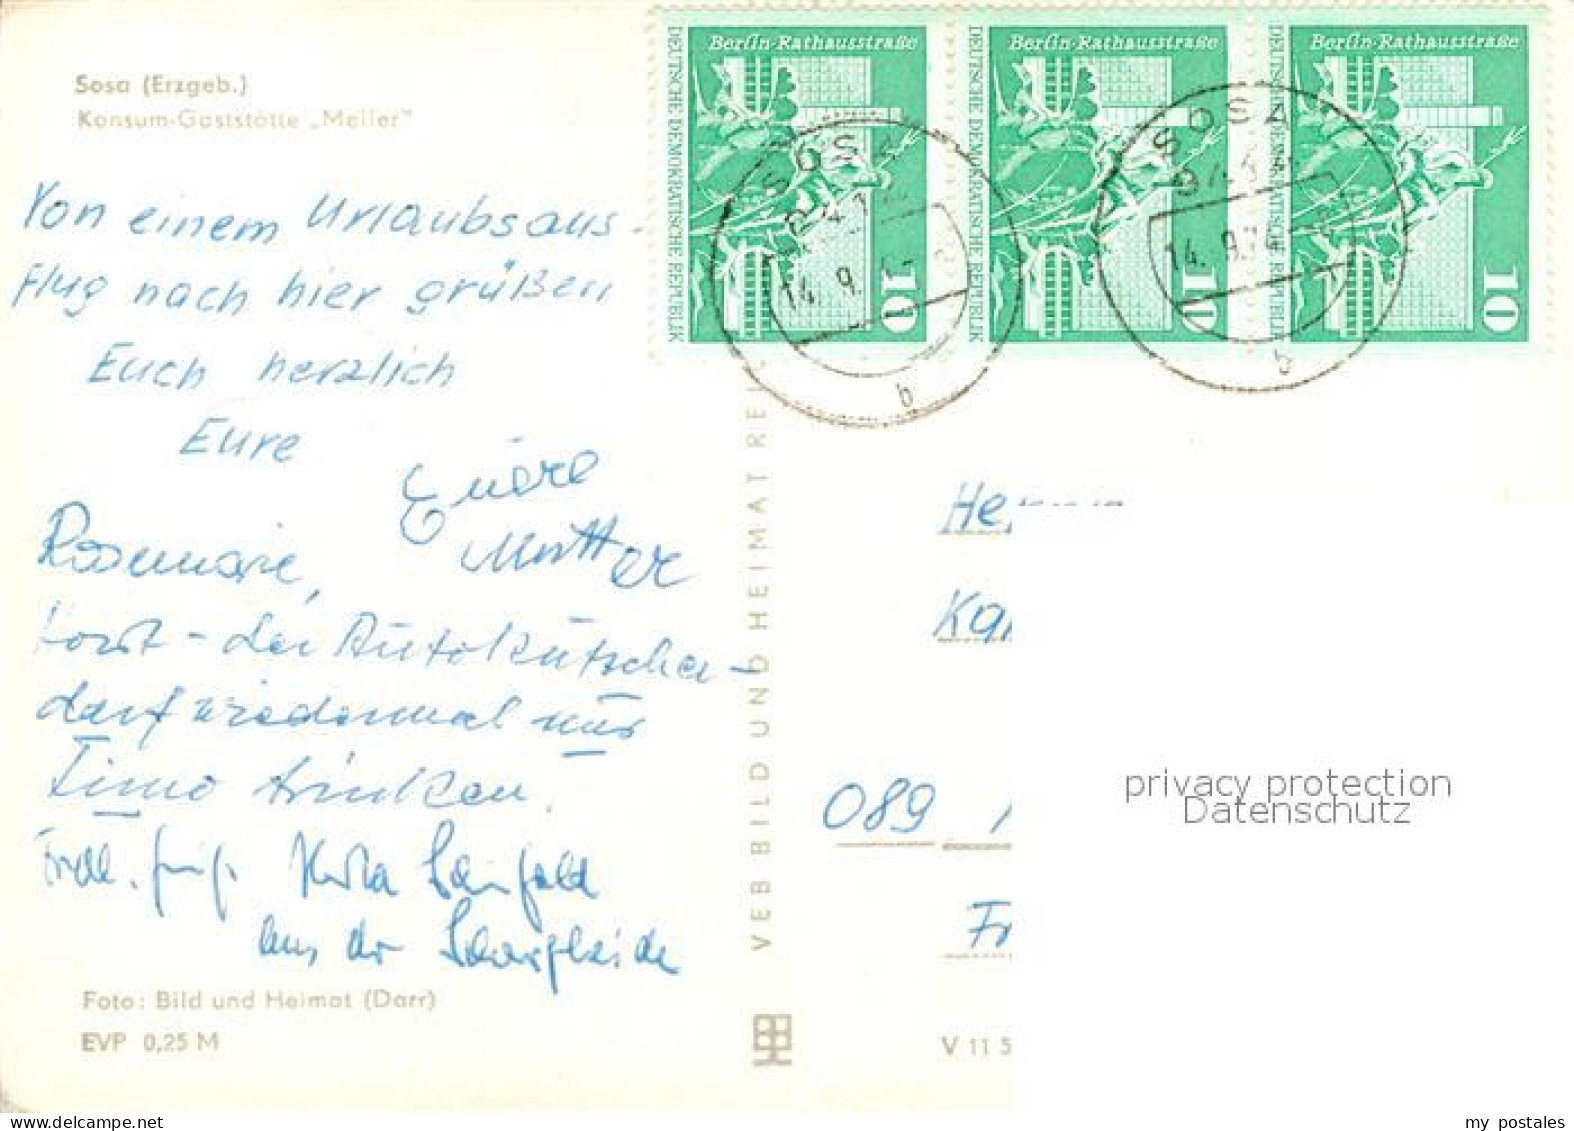 Sosa (Erzgeb.)
Konsum-Gaststätte „Meiler"
Von einem Urlaubsaus-
flug nach hier grüßen
Euch herzlich
Eure
Eure
Mutter
Rosemarie,
Horst - der Autokutscher -
darf wiedermal nur
Limo trinken.
aus der
Foto: Bild und Heimat (Darr)
EVP 0,25 M
VEB BILD UND HEIMAT REI
V 11 5
Berlin-Rathausstraße
DEUTSCHE DEMOKRATISCHE REPUBLIK
10
Berlin-Rathausstraße
DEUTSCHE DEMOKRATISCHE REPUBLIK
10
Berlin-Rathausstraße
DEUTSCHE DEMOKRATISCHE REPUBLIK
10
SOSA
9414
14. 9.
b
SOSA
9414
14. 9.74
b
089
privacy protection
Datenschutz
www.delcampe.net
my_postales